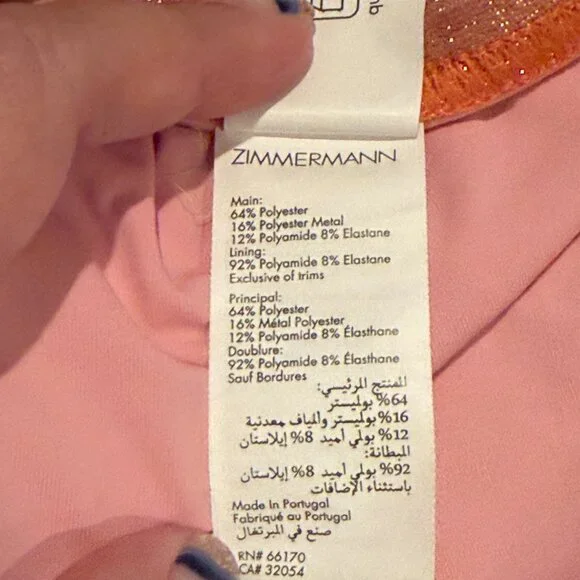 ZIMMERMANN
Main:
64% Polyester
16% Polyester Metal
12% Polyamide 8% Elastane
Lining:
92% Polyamide 8% Elastane
Exclusive of trims
Principal:
64% Polyester
16% Métal Polyester
12% Polyamide 8% Élasthane
Doublure:
92% Polyamide 8% Élasthane
Sauf Bordures
المنتج المرئيسي:
64% بوليستر
16% بوليستر والياف معدنية
12% بولي أميد 8% إيلاستان
البطانة:
92% بولي أميد 8% إيلاستان
باستثناء الإضافات
Made In Portugal
Fabriqué au Portugal
صنع في المبرتغال
RN# 66170
CA# 32054